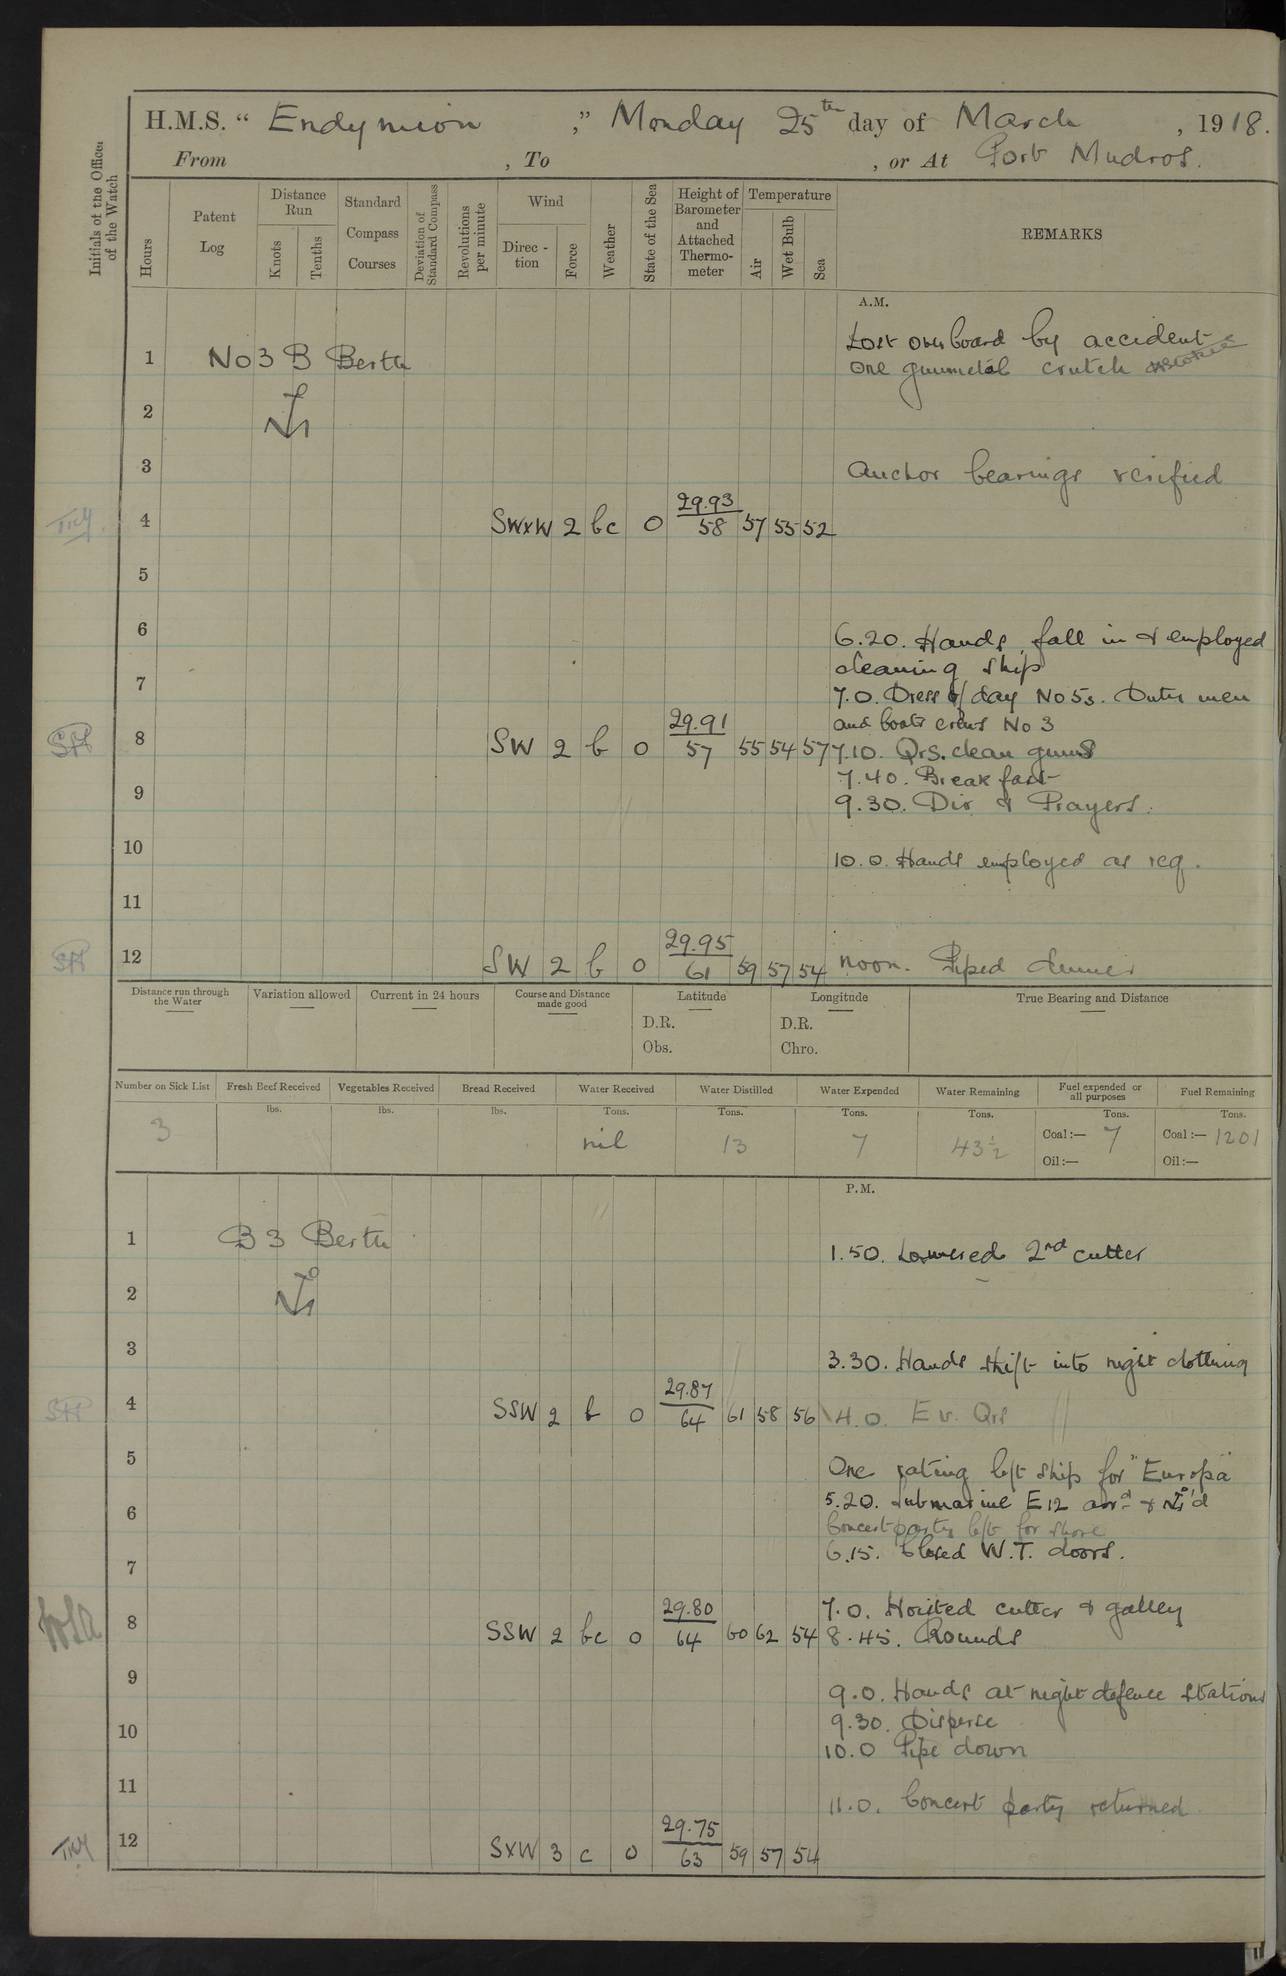 H.M.S. "Endymion," Monday 25th day of March, 1918.
From , To , or At Port Mudros.
Initials of the Officer of the Watch
Hours
Patent Log
Distance Run
Knots
Tenths
Standard Compass Courses
Deviation of Standard Compass
Revolutions per minute
Wind
Direc-tion
Force
Weather
State of the Sea
Height of Barometer and Attached Thermo-meter
Temperature
Air
Wet Bulb
Sea
REMARKS
A.M.
Lost overboard by accident
1 No 3 B Berth one gunmetal crutch
2
3 Anchor bearings verified
29.93
4 SWxW 2 bc 0 58 57 55 52
5
6 6.20. Hands fall in & employed
cleaning ship
7 7.0. Dress of day No 5s. Duty men
29.91 and boats crews No 3
SH 8 SW 2 b 0 57 55 54 57 7.10. Qrs. clean guns
7.40. Breakfast
9 9.30. Div & Prayers.
10 10.0. Hands employed as req.
11
29.95
SH 12 SW 2 b 0 61 59 57 54 noon. Piped dinner
Distance run through the Water
Variation allowed
Current in 24 hours
Course and Distance made good
Latitude
D.R.
Obs.
Longitude
D.R.
Chro.
True Bearing and Distance
Number on Sick List
3
Fresh Beef Received
lbs.
Vegetables Received
lbs.
Bread Received
lbs.
Water Received
Tons.
nil
Water Distilled
Tons.
13
Water Expended
Tons.
7
Water Remaining
Tons.
43½
Fuel expended or all purposes
Tons.
Coal:— 7
Oil:—
Fuel Remaining
Tons.
Coal:— 1201
Oil:—
P.M.
1 B 3 Berth 1.50. Lowered 2nd cutter
2
3 3.30. Hands shift into night clothing
29.87
SH 4 SSW 2 b 0 64 61 58 56 4.0. Ev. Qrs
5 One rating left ship for "Europa"
5.20. Submarine E12 arrd &
6 Concert party left for shore
6.15. Closed W.T. doors.
7
29.80 7.0. Hoisted cutter & galley
8 SSW 2 bc 0 64 60 62 54 8.45. Rounds
9 9.0. Hands at night defence stations
10 9.30. Disperse
10.0 Pipe down
11 11.0. Concert party returned
29.75
12 SxW 3 c 0 63 59 57 54